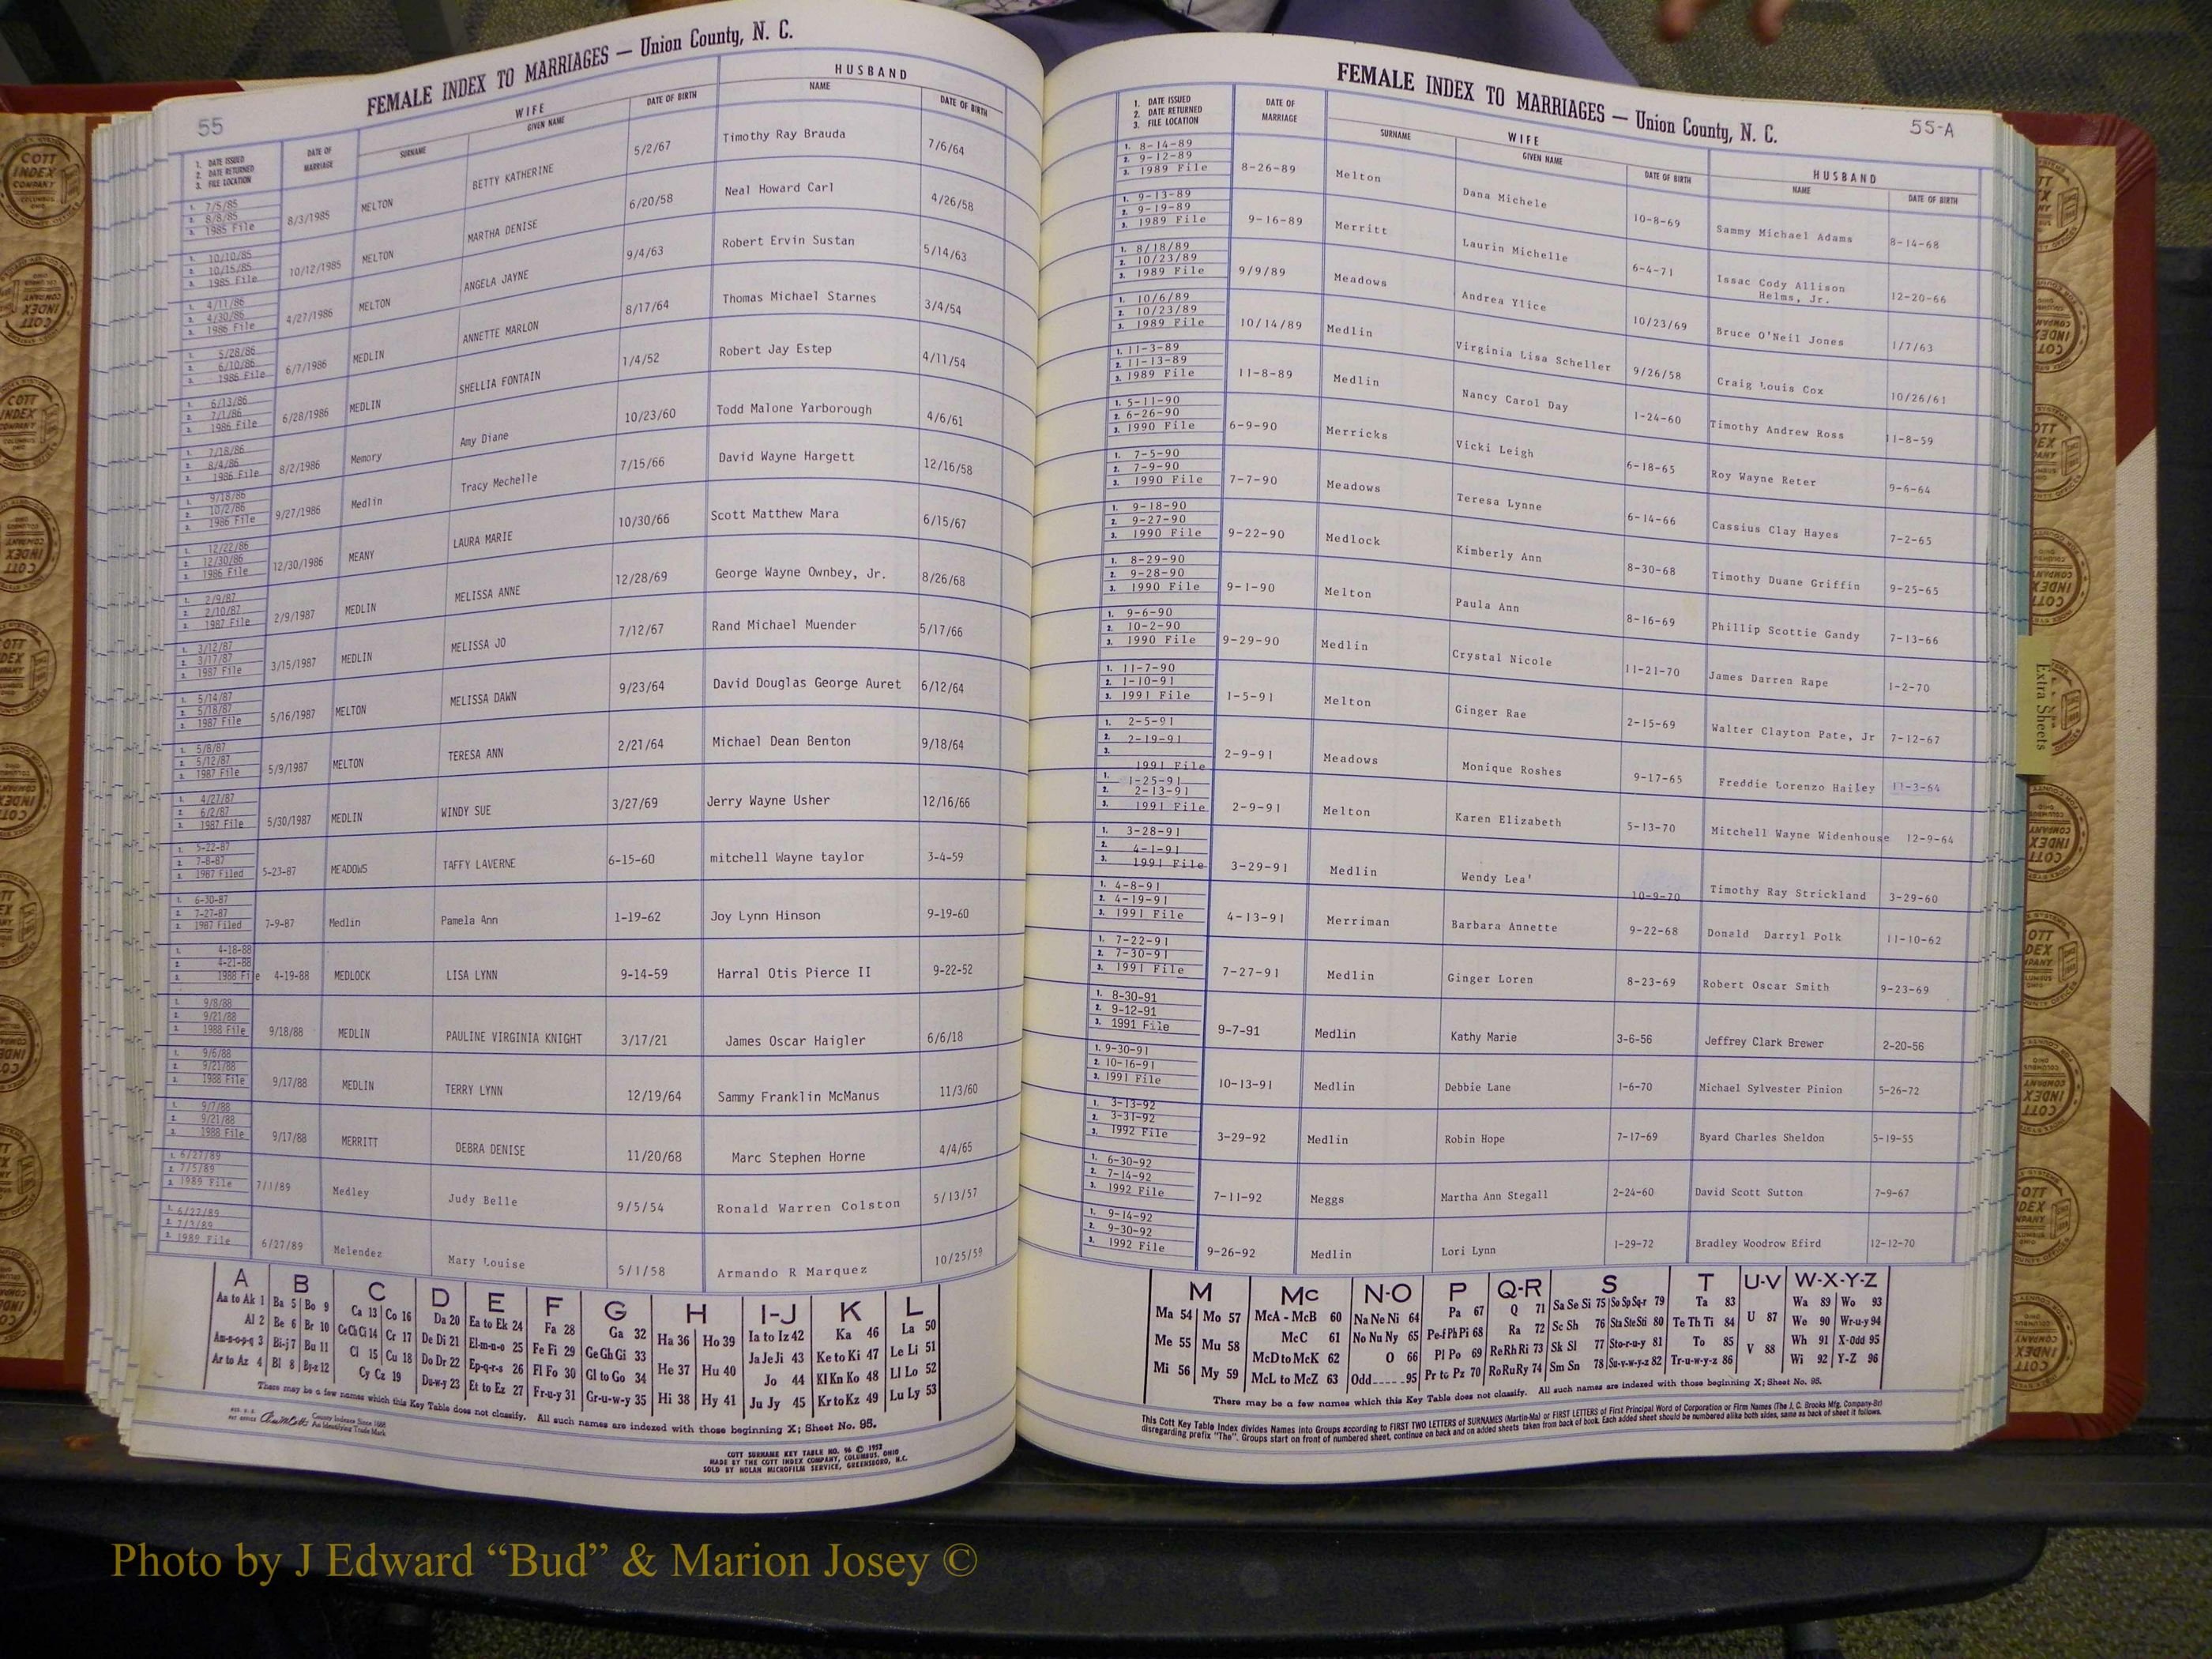 FEMALE INDEX TO MARRIAGES — Union County, N. C.
55
WIFE
HUSBAND
1. DATE ISSUED
2. DATE RETURNED
3. FILE LOCATION
DATE OF MARRIAGE
SURNAME
GIVEN NAME
DATE OF BIRTH
NAME
DATE OF BIRTH
1. 7/5/85
2. 8/8/85
3. 1985 File
8/3/1985 MELTON BETTY KATHERINE 5/2/67 Timothy Ray Brauda 7/6/64
1. 10/10/85
2. 10/15/85
3. 1985 File
10/12/1985 MELTON MARTHA DENISE 6/20/58 Neal Howard Carl 4/26/58
1. 4/11/86
2. 4/30/86
3. 1986 File
4/27/1986 MELTON ANGELA JAYNE 9/4/63 Robert Ervin Sustan 5/14/63
1. 5/28/86
2. 6/10/86
3. 1986 File
6/7/1986 MEDLIN ANNETTE MARLON 8/17/64 Thomas Michael Starnes 3/4/54
1. 6/13/86
2. 7/1/86
3. 1986 File
6/28/1986 MEDLIN SHELLIA FONTAIN 1/4/52 Robert Jay Estep 4/11/54
1. 7/18/86
2. 8/4/86
3. 1986 File
8/2/1986 Memory Amy Diane 10/23/60 Todd Malone Yarborough 4/6/61
1. 9/18/86
2. 10/2/86
3. 1986 File
9/27/1986 Medlin Tracy Mechelle 7/15/66 David Wayne Hargett 12/16/58
1. 12/22/86
2. 12/30/86
3. 1986 File
12/30/1986 MEANY LAURA MARIE 10/30/66 Scott Matthew Mara 6/15/67
1. 2/9/87
2. 2/10/87
3. 1987 File
2/9/1987 MEDLIN MELISSA ANNE 12/28/69 George Wayne Ownbey, Jr. 8/26/68
1. 3/12/87
2. 3/17/87
3. 1987 File
3/15/1987 MEDLIN MELISSA JO 7/12/67 Rand Michael Muender 5/17/66
1. 5/14/87
2. 5/18/87
3. 1987 File
5/16/1987 MELTON MELISSA DAWN 9/23/64 David Douglas George Auret 6/12/64
1. 5/8/87
2. 5/12/87
3. 1987 File
5/9/1987 MELTON TERESA ANN 2/21/64 Michael Dean Benton 9/18/64
1. 4/27/87
2. 6/2/87
3. 1987 File
5/30/1987 MEDLIN WINDY SUE 3/27/69 Jerry Wayne Usher 12/16/66
1. 5-22-87
2. 7-8-87
3. 1987 Filed
5-23-87 MEADOWS TAFFY LAVERNE 6-15-60 mitchell Wayne taylor 3-4-59
1. 6-30-87
2. 7-27-87
3. 1987 Filed
7-9-87 Medlin Pamela Ann 1-19-62 Joy Lynn Hinson 9-19-60
1. 4-18-88
2. 4-21-88
3. 1988 File
4-19-88 MEDLOCK LISA LYNN 9-14-59 Harral Otis Pierce II 9-22-52
1. 9/8/88
2. 9/21/88
3. 1988 File
9/18/88 MEDLIN PAULINE VIRGINIA KNIGHT 3/17/21 James Oscar Haigler 6/6/18
1. 9/6/88
2. 9/21/88
3. 1988 File
9/17/88 MEDLIN TERRY LYNN 12/19/64 Sammy Franklin McManus 11/3/60
1. 9/7/88
2. 9/21/88
3. 1988 File
9/17/88 MERRITT DEBRA DENISE 11/20/68 Marc Stephen Horne 4/4/65
1. 6/27/89
2. 7/5/89
3. 1989 File
7/1/89 Medley Judy Belle 9/5/54 Ronald Warren Colston 5/13/57
1. 6/27/89
2. 7/3/89
3. 1989 File
6/27/89 Melendez Mary Louise 5/1/58 Armando R Marquez 10/25/59
A B C D E F G H I-J K L
Aa to Ak 1 Ba 5 Bo 9 Ca 13 Co 16 Da 20 Ea to Ek 24 Fa 28 Ga 32 Ha 36 Ho 39 Ia to Iz 42 Ka 46 La 50
Al 2 Be 6 Br 10 Ce Ch Ci 14 Cr 17 De Di 21 El-m-n-o 25 Fe Fi 29 Ge Gh Gi 33 He 37 Hu 40 Ja Je Ji 43 Ke to Ki 47 Le Li 51
Am-n-o-p-q 3 Bi-j 7 Bu 11 Cl 15 Cu 18 Do Dr 22 Ep-q-r-s 26 Fl Fo 30 Gl to Go 34 Hi 38 Hy 41 Jo 44 Kl Kn Ko 48 Ll Lo 52
Ar to Az 4 Bl 8 By-z 12 Cy Cz 19 Du-w-y 23 Et to Ez 27 Fr-u-y 31 Gr-u-w-y 35 Ju Jy 45 Kr to Kz 49 Lu Ly 53
There may be a few names which this Key Table does not classify. All such names are indexed with those beginning X; Sheet No. 95.
County Indexes Since 1888
An Identifying Trade Mark
COTT SURNAME KEY TABLE NO. 96 © 1952
MADE BY THE COTT INDEX COMPANY, COLUMBUS, OHIO
SOLD BY NOLAN MICROFILM SERVICE, GREENSBORO, N.C.
FEMALE INDEX TO MARRIAGES — Union County, N. C.
55-A
WIFE
HUSBAND
1. DATE ISSUED
2. DATE RETURNED
3. FILE LOCATION
DATE OF MARRIAGE
SURNAME
GIVEN NAME
DATE OF BIRTH
NAME
DATE OF BIRTH
1. 8-14-89
2. 9-12-89
3. 1989 File
8-26-89 Melton Dana Michele 10-8-69 Sammy Michael Adams 8-14-68
1. 9-13-89
2. 9-19-89
3. 1989 File
9-16-89 Merritt Laurin Michelle 6-4-71 Issac Cody Allison Helms, Jr. 12-20-66
1. 8/18/89
2. 10/23/89
3. 1989 File
9/9/89 Meadows Andrea Ylice 10/23/69 Bruce O'Neil Jones 1/7/63
1. 10/6/89
2. 10/23/89
3. 1989 File
10/14/89 Medlin Virginia Lisa Scheller 9/26/58 Craig Louis Cox 10/26/61
1. 11-3-89
2. 11-13-89
3. 1989 File
11-8-89 Medlin Nancy Carol Day 1-24-60 Timothy Andrew Ross 11-8-59
1. 5-11-90
2. 6-26-90
3. 1990 File
6-9-90 Merricks Vicki Leigh 6-18-65 Roy Wayne Reter 9-6-64
1. 7-5-90
2. 7-9-90
3. 1990 File
7-7-90 Meadows Teresa Lynne 6-14-66 Cassius Clay Hayes 7-2-65
1. 9-18-90
2. 9-27-90
3. 1990 File
9-22-90 Medlock Kimberly Ann 8-30-68 Timothy Duane Griffin 9-25-65
1. 8-29-90
2. 9-28-90
3. 1990 File
9-1-90 Melton Paula Ann 8-16-69 Phillip Scottie Gandy 7-13-66
1. 9-6-90
2. 10-2-90
3. 1990 File
9-29-90 Medlin Crystal Nicole 11-21-70 James Darren Rape 1-2-70
1. 11-7-90
2. 1-10-91
3. 1991 File
1-5-91 Melton Ginger Rae 2-15-69 Walter Clayton Pate, Jr 7-12-67
1. 2-5-91
2. 2-19-91
3. 1991 File
2-9-91 Meadows Monique Roshes 9-17-65 Freddie Lorenzo Hailey 11-3-64
1. 1-25-91
2. 2-13-91
3. 1991 File
2-9-91 Melton Karen Elizabeth 5-13-70 Mitchell Wayne Widenhouse 12-9-64
1. 3-28-91
2. 4-1-91
3. 1991 File
3-29-91 Medlin Wendy Lea' 10-9-70 Timothy Ray Strickland 3-29-60
1. 4-8-91
2. 4-19-91
3. 1991 File
4-13-91 Merriman Barbara Annette 9-22-68 Donald Darryl Polk 11-10-62
1. 7-22-91
2. 7-30-91
3. 1991 File
7-27-91 Medlin Ginger Loren 8-23-69 Robert Oscar Smith 9-23-69
1. 8-30-91
2. 9-12-91
3. 1991 File
9-7-91 Medlin Kathy Marie 3-6-56 Jeffrey Clark Brewer 2-20-56
1. 9-30-91
2. 10-16-91
3. 1991 File
10-13-91 Medlin Debbie Lane 1-6-70 Michael Sylvester Pinion 5-26-72
1. 3-13-92
2. 3-31-92
3. 1992 File
3-29-92 Medlin Robin Hope 7-17-69 Byard Charles Sheldon 5-19-55
1. 6-30-92
2. 7-14-92
3. 1992 File
7-11-92 Meggs Martha Ann Stegall 2-24-60 David Scott Sutton 7-9-67
1. 9-14-92
2. 9-30-92
3. 1992 File
9-26-92 Medlin Lori Lynn 1-29-72 Bradley Woodrow Efird 12-12-70
M Mc N-O P Q-R S T U-V W-X-Y-Z
Ma 54 Mo 57 McA - McB 60 Na Ne Ni 64 Pa 67 Q 71 Sa Se Si 75 So Sp Sq-r 79 Ta 83 U 87 Wa 89 Wo 93
Me 55 Mu 58 McC 61 No Nu Ny 65 Pe-f Ph Pi 68 Ra 72 Sc Sh 76 Sta Ste Sti 80 Te Th Ti 84 V 88 We 90 Wr-u-y 94
Mi 56 My 59 McD to McK 62 O 66 Pl Po 69 Re Rh Ri 73 Sk Sl 77 Sto-r-u-y 81 To 85 Wh 91 X-Odd 95
McL to McZ 63 Odd 95 Pr to Pz 70 Ro Ru Ry 74 Sm Sn 78 Su-v-w-y-z 82 Tr-u-w-y-z 86 Wi 92 Y-Z 96
There may be a few names which this Key Table does not classify. All such names are indexed with those beginning X; Sheet No. 95.
This Cott Key Table Index divides Names into Groups according to FIRST TWO LETTERS of SURNAMES (Martin-Ma) or FIRST LETTERS of First Principal Word of Corporation or Firm Names (The J. C. Brooks Mfg. Company-Br)
disregarding prefix "The". Groups start on front of numbered sheet, continue on back and on added sheets taken from back of book. Each added sheet should be numbered alike both sides, same as back of sheet it follows.
Extra Sheets
COTT INDEX COMPANY COLUMBUS OHIO
Photo by J Edward “Bud” & Marion Josey ©